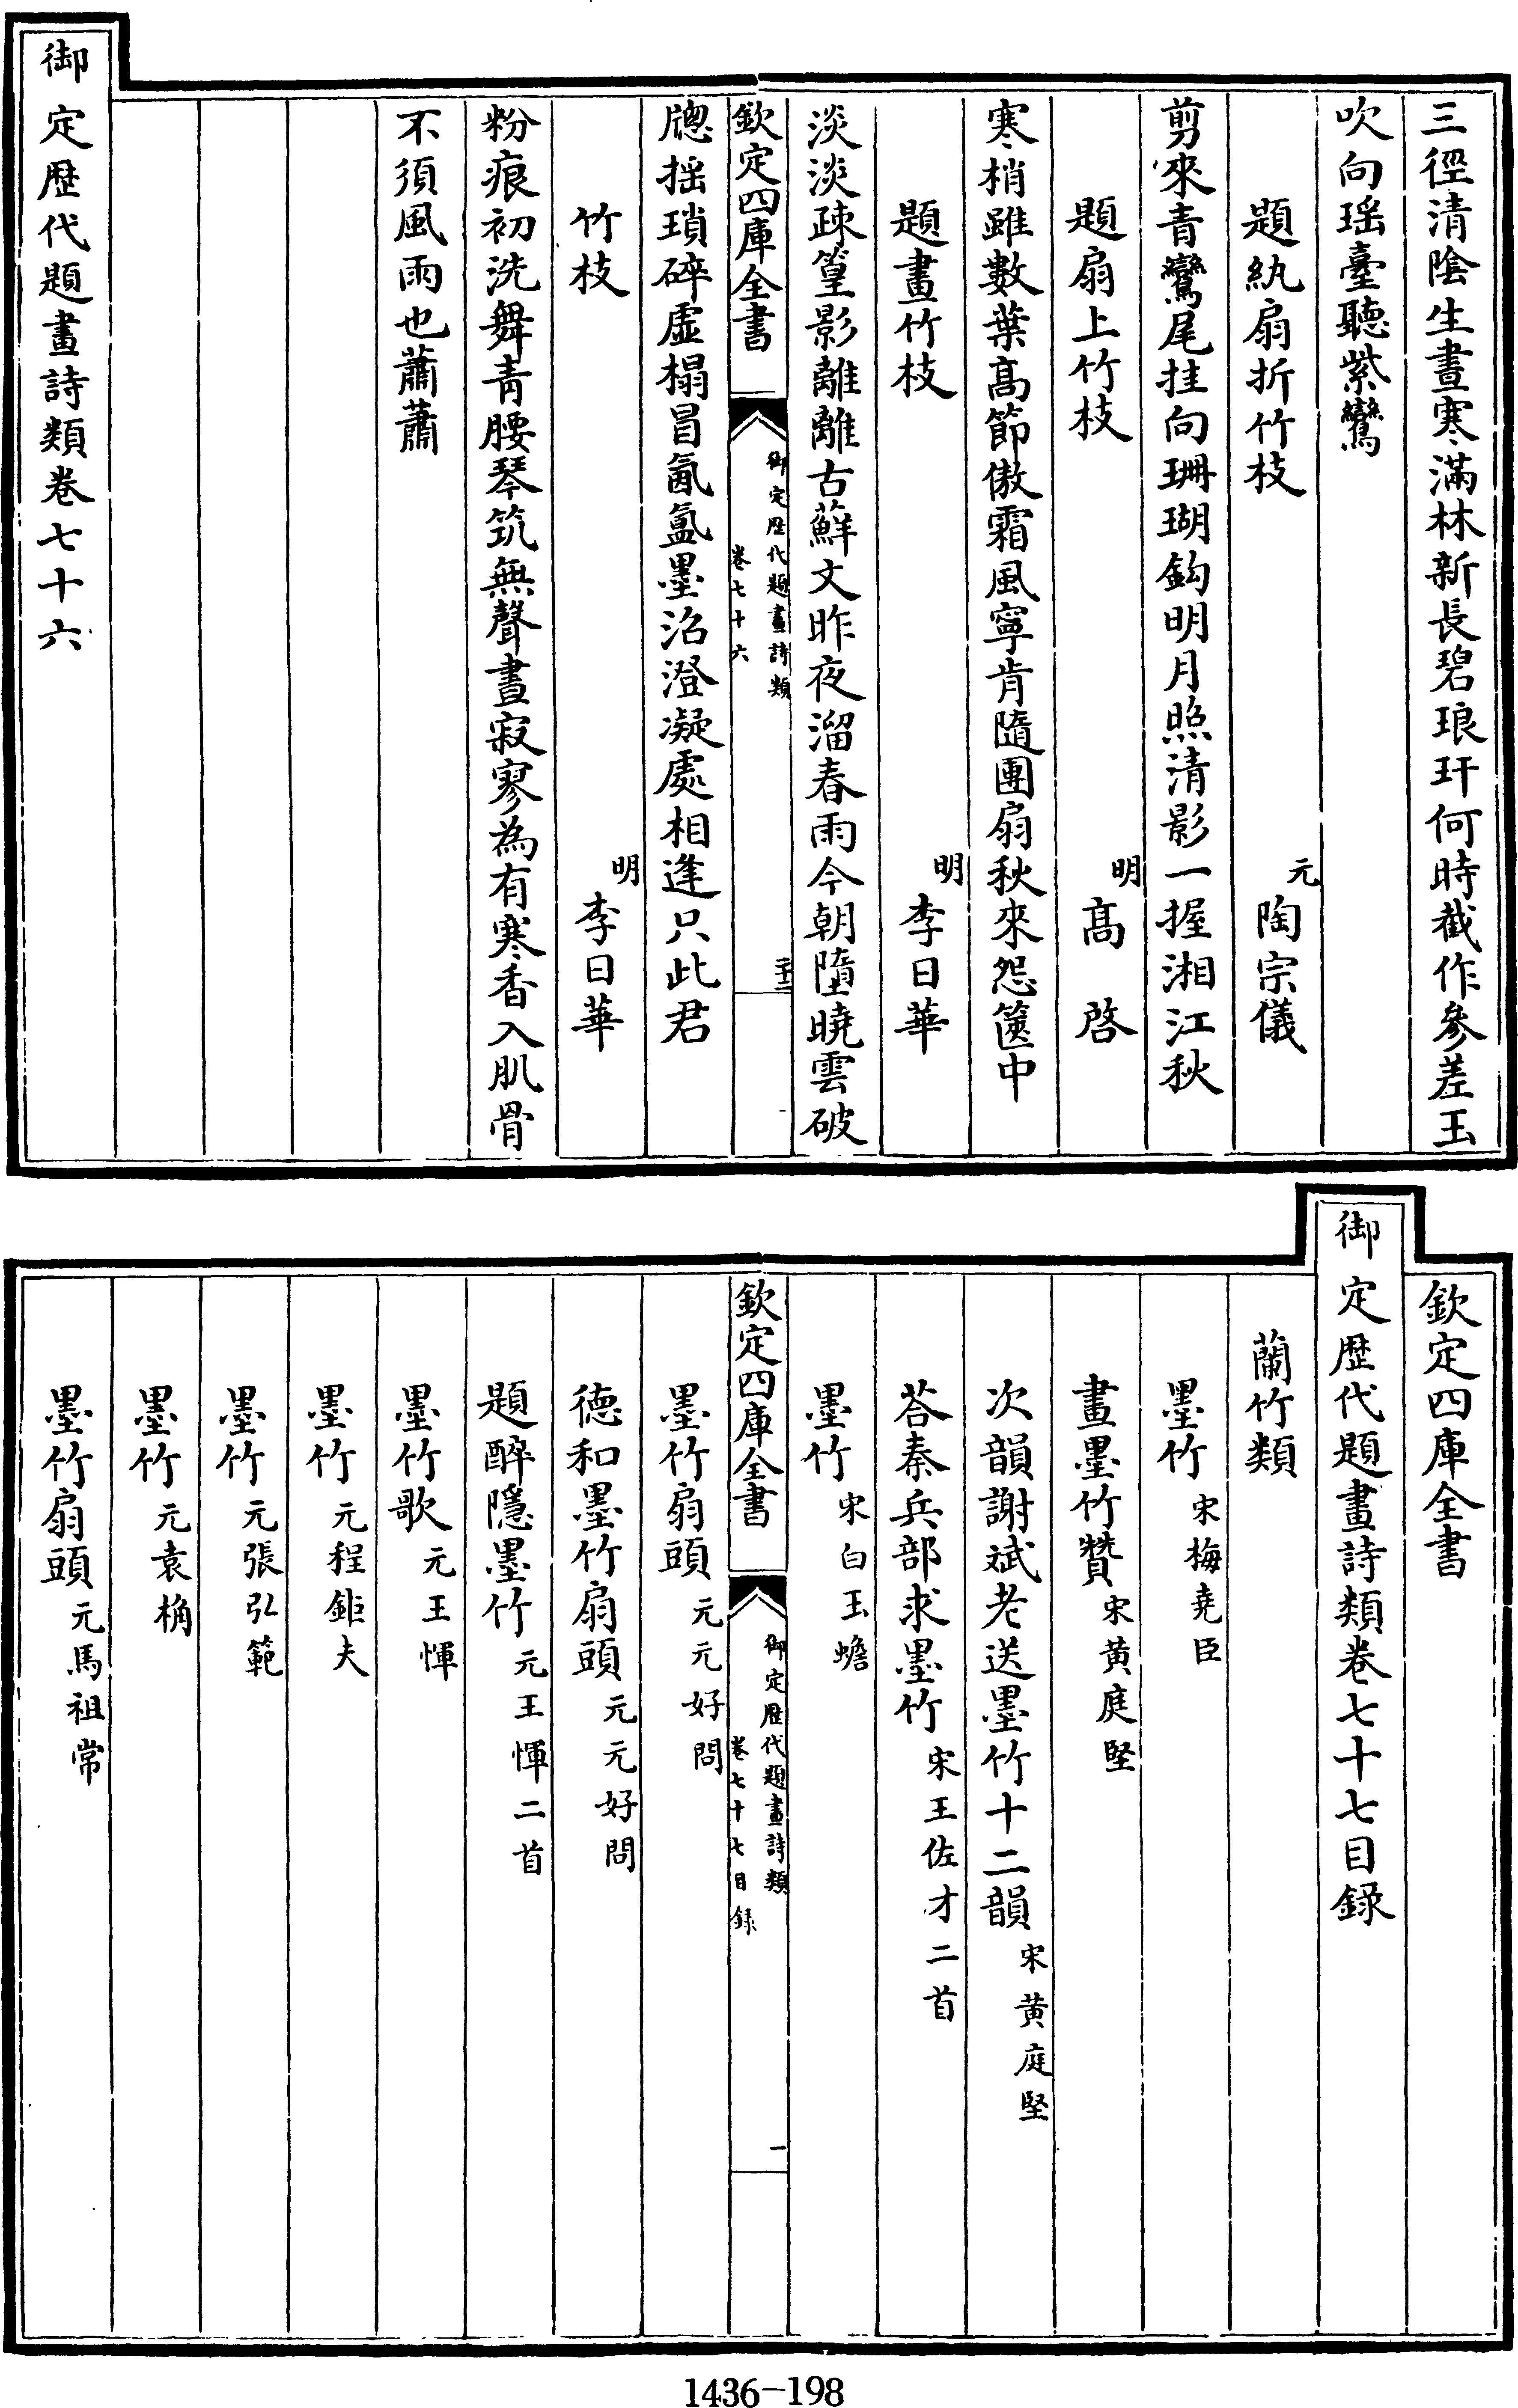 三徑清陰生晝寒滿林新長碧琅玕何時截作參差玉
吹向瑶臺聽紫鸞
題紈扇折竹枝 元 陶宗儀
剪來青鸞尾挂向珊瑚鈎明月照清影一握湘江秋
題扇上竹枝 明 髙 啓
寒梢雖數葉髙節傲霜風寧肯隨團扇秋來怨篋中
題畫竹枝 明 李日華
淡淡疎篁影離離古蘚文昨夜溜春雨今朝墮曉雲破
欽定四庫全書
御定歴代題畫詩類
卷七十六
二十三
牕揺瑣碎虚榻冒氤氲墨沼澄凝處相逢只此君
竹枝 明 李日華
粉痕初洗舞青腰琴筑無聲晝寂寥為有寒香入肌骨
不須風雨也蕭蕭
御定歴代題畫詩類卷七十六
欽定四庫全書
御定歴代題畫詩類卷七十七目録
蘭竹類
墨竹 宋梅堯臣
畫墨竹贊 宋黄庭堅
次韻謝斌老送墨竹十二韻 宋黄庭堅
荅秦兵部求墨竹 宋王佐才二首
墨竹 宋白玉蟾
欽定四庫全書
御定歴代題畫詩類
卷七十七目録
一
墨竹扇頭 元元好問
德和墨竹扇頭 元元好問
題醉隱墨竹 元王惲二首
墨竹歌 元王惲
墨竹 元程鉅夫
墨竹 元張弘範
墨竹 元袁桷
墨竹扇頭 元馬祖常
1436-198